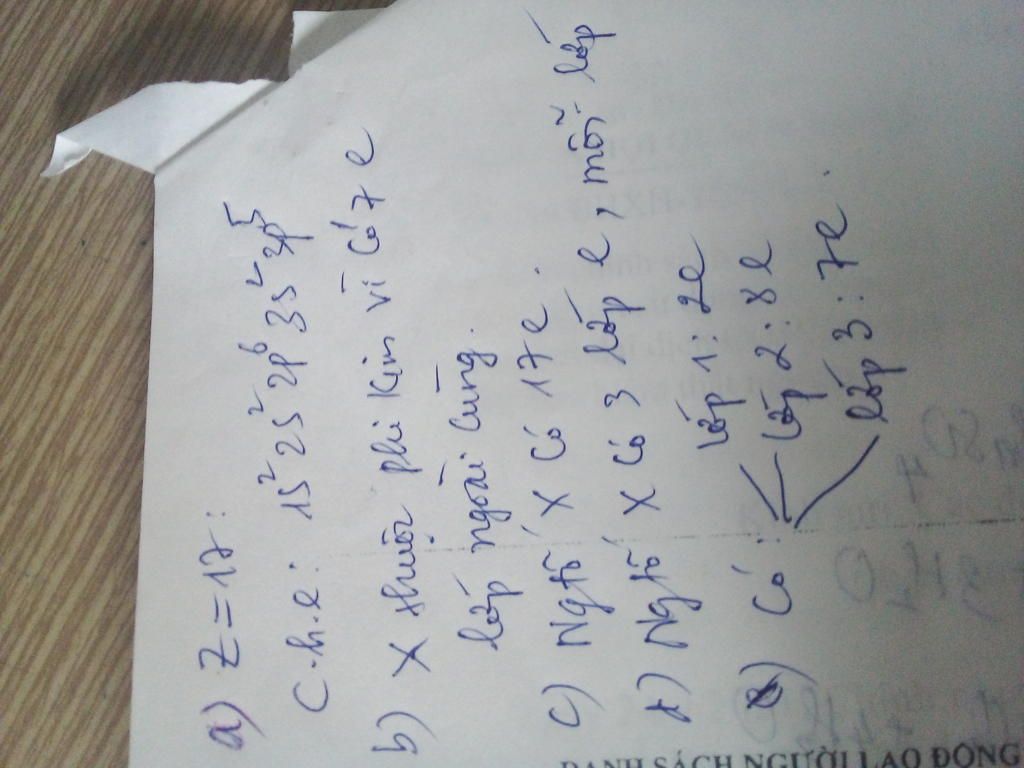 a) Z = 17:
C.h.e: 1s² 2s² 2p⁶ 3s² 3p⁵
b) X thuộc phi kim vì có 7e
lớp ngoài cùng.
c) Ngtố X có 17e.
d) Ngtố X có 3 lớp e, mỗi lớp
có: lớp 1: 2e
lớp 2: 8e
lớp 3: 7e.
DANH SÁCH NGƯỜI LAO ĐỘNG